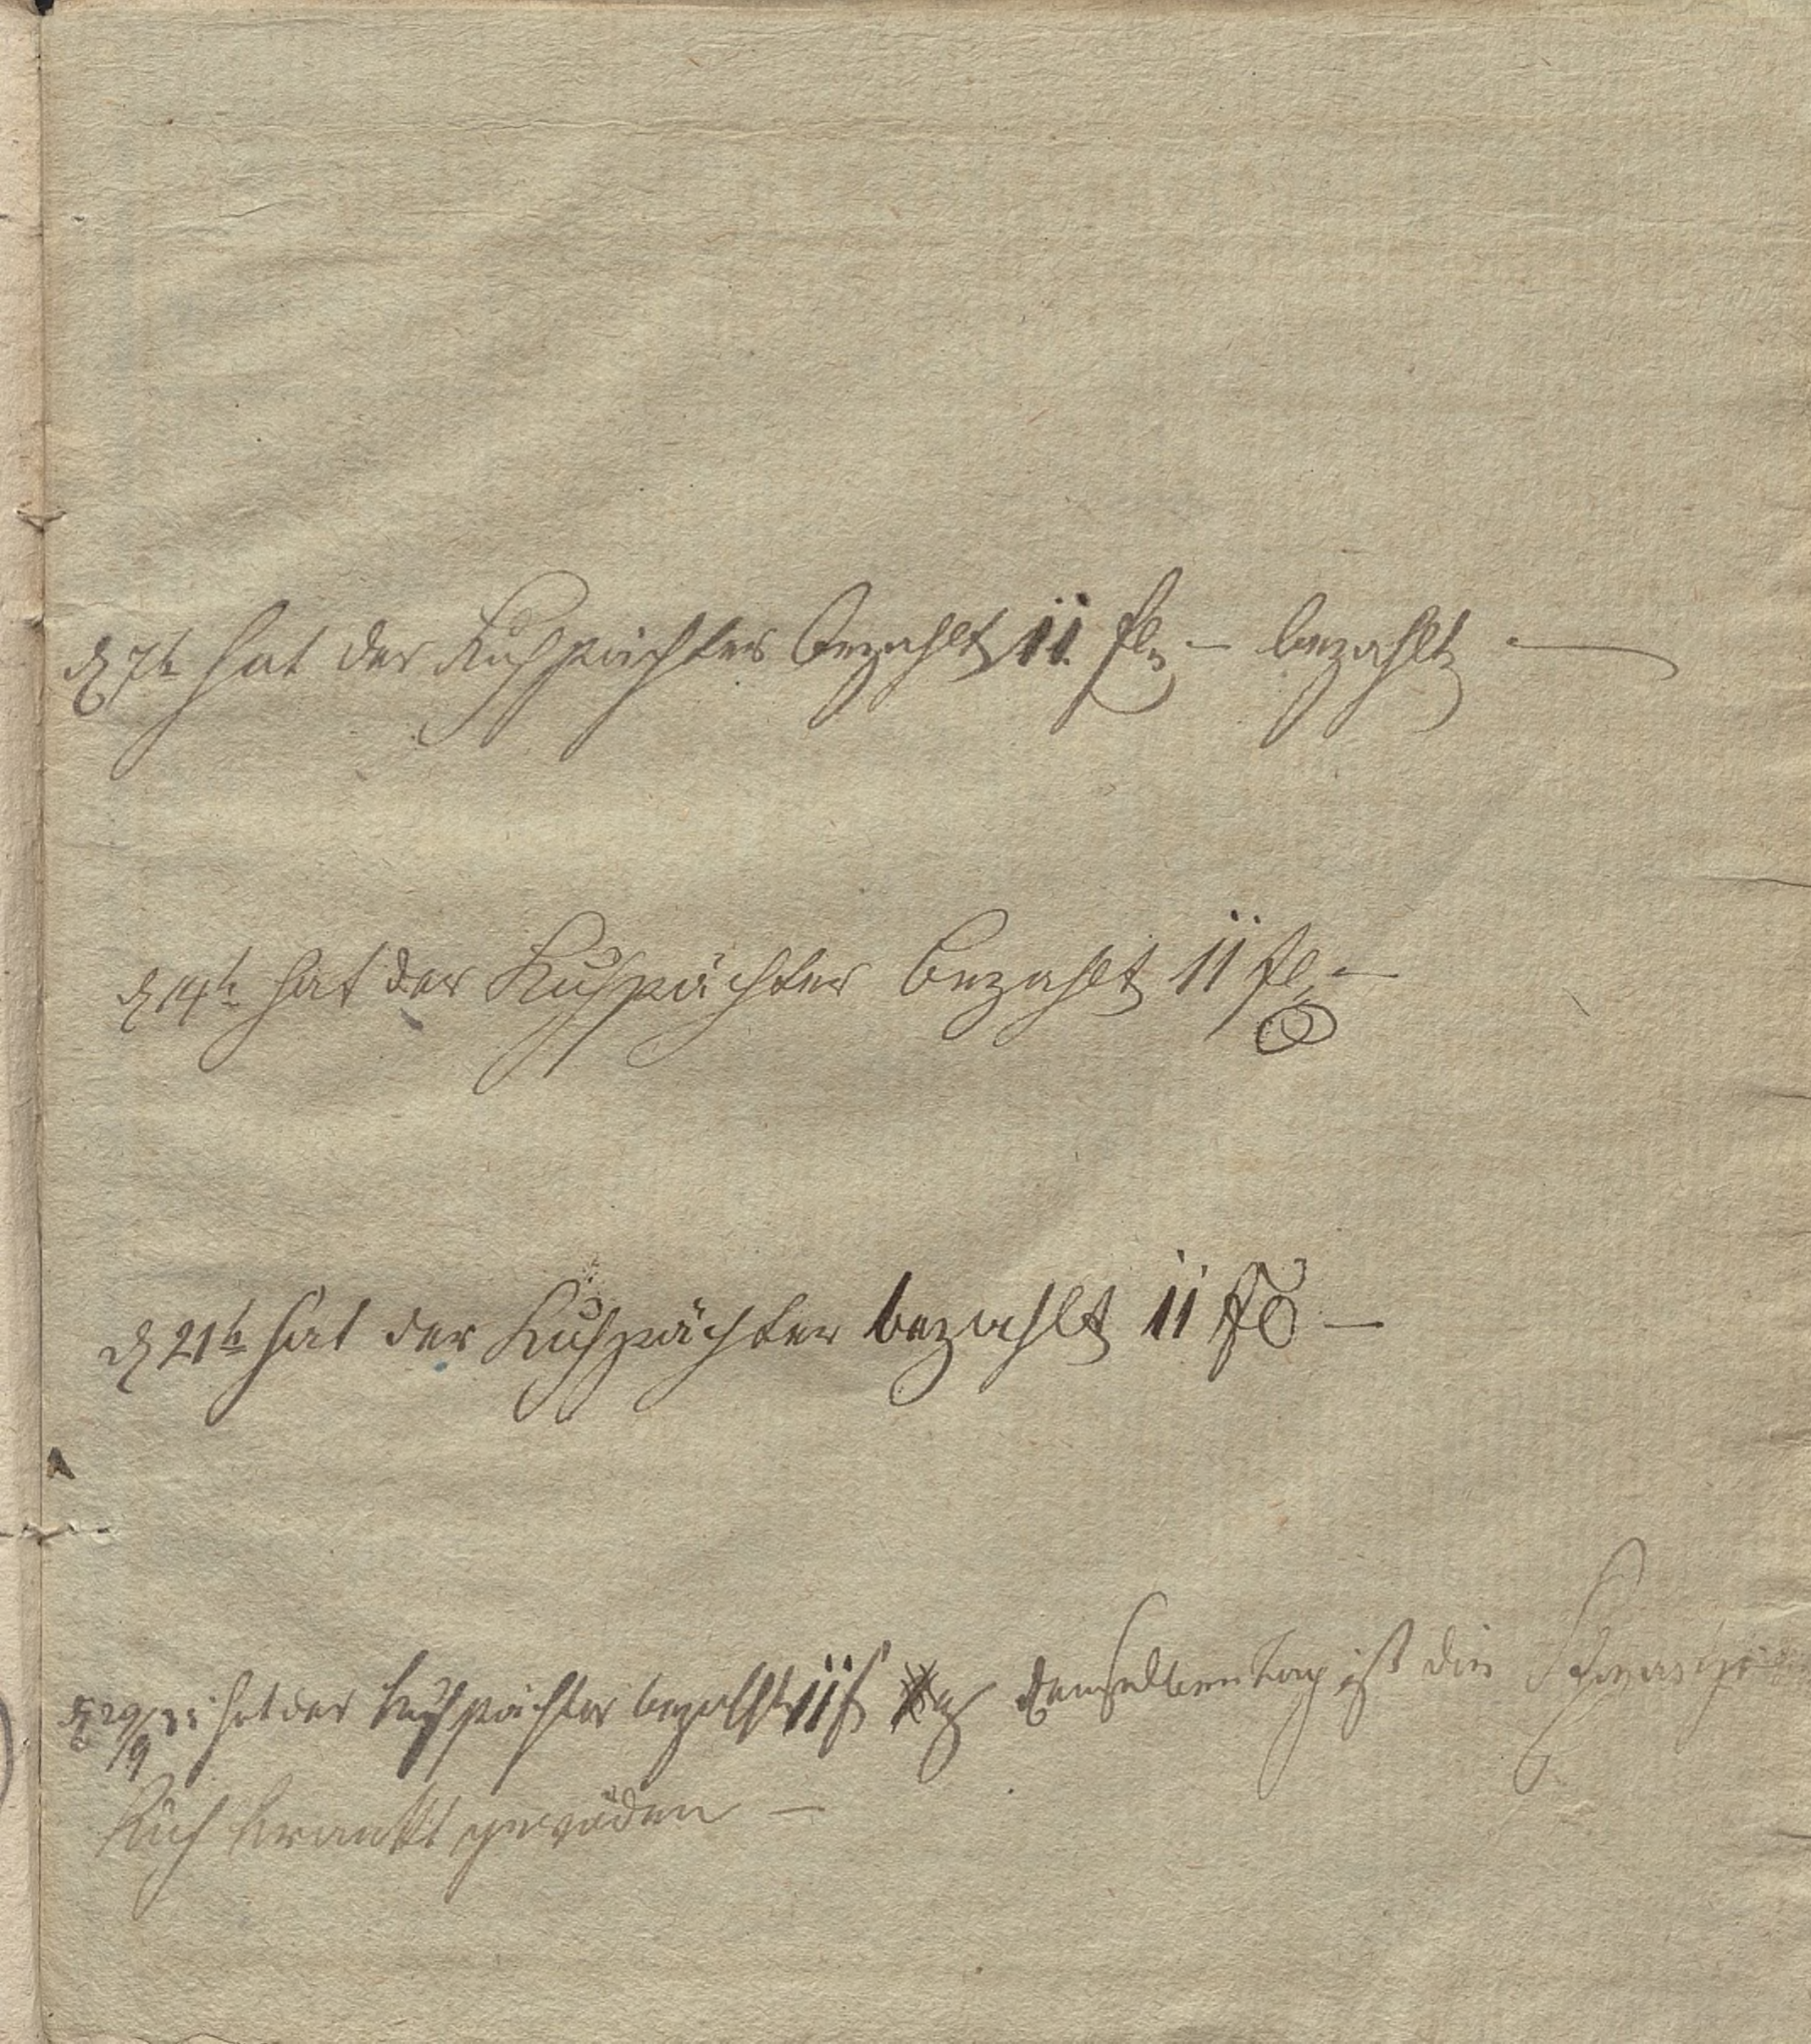 d 7t hat der Kuhpächter bezahlt 11 fl – bezahlt –
d 14t hat der Kuhpächter bezahlt 11 fl –
d 21t hat der Kuhpächter bezahlt 11 fl –
d 29/9 hat der Kuhpächter bezahlt 11 f demselben tag ist die Schwarze
Kuh krankt gewoden –